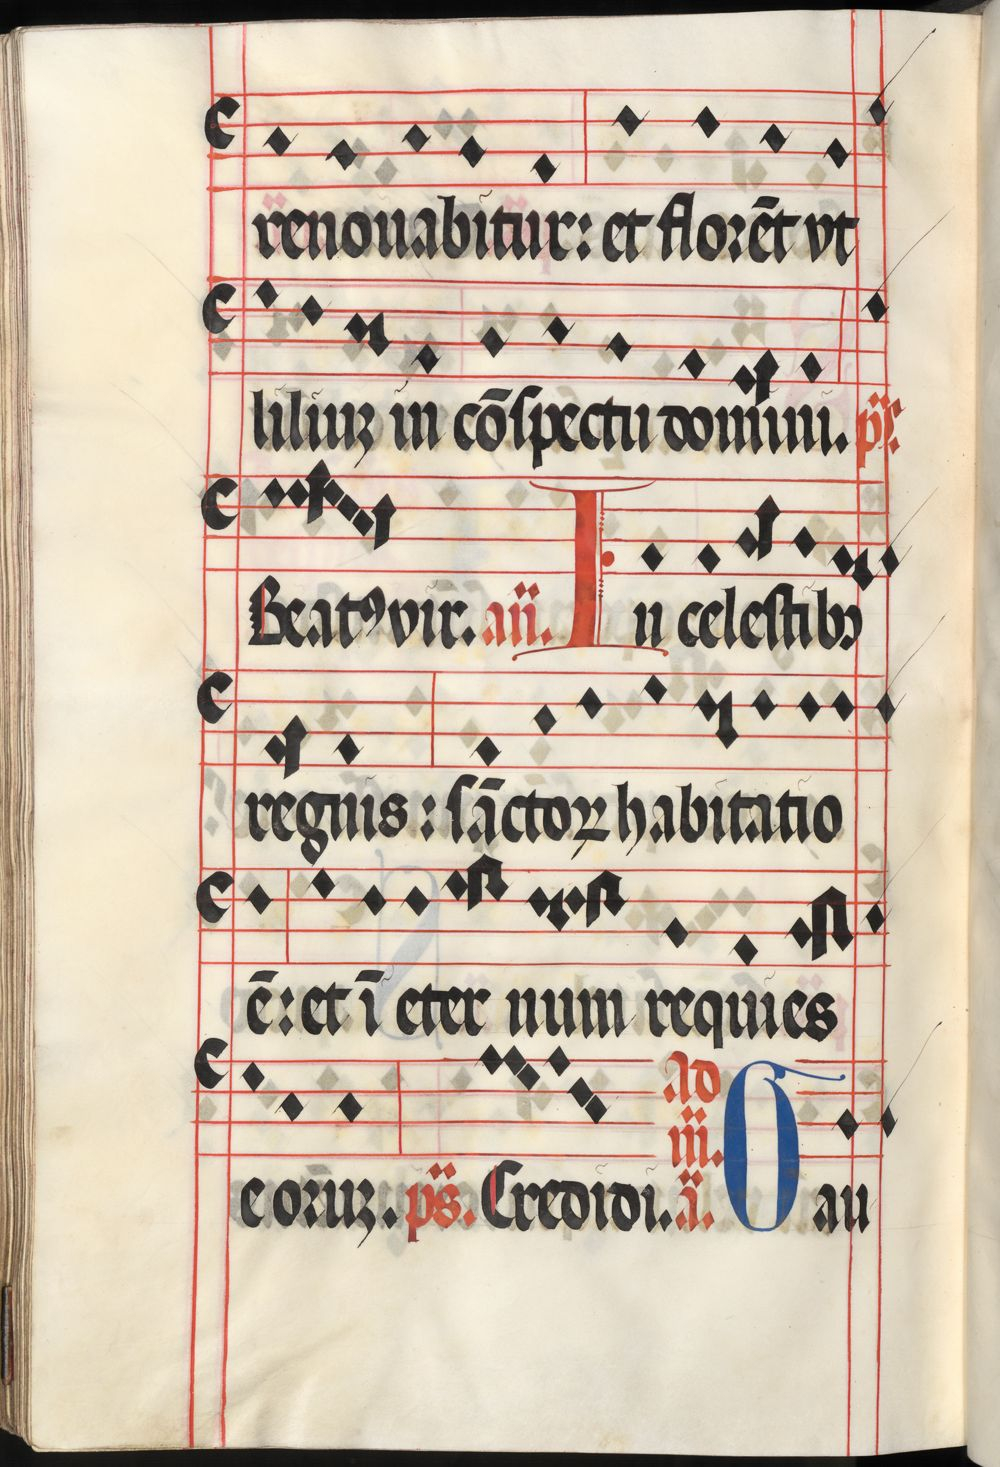 renouabitur: et florēt vt
liliuꝫ in cōspectu domini. ps:
Beatꝰ vir. añ. In celestibꝫ
regnis: sāctoꝝ habitatio
ē: et ī eter num requies
e oꝛuꝫ. ps. Credidi. ad iii. ā. O au